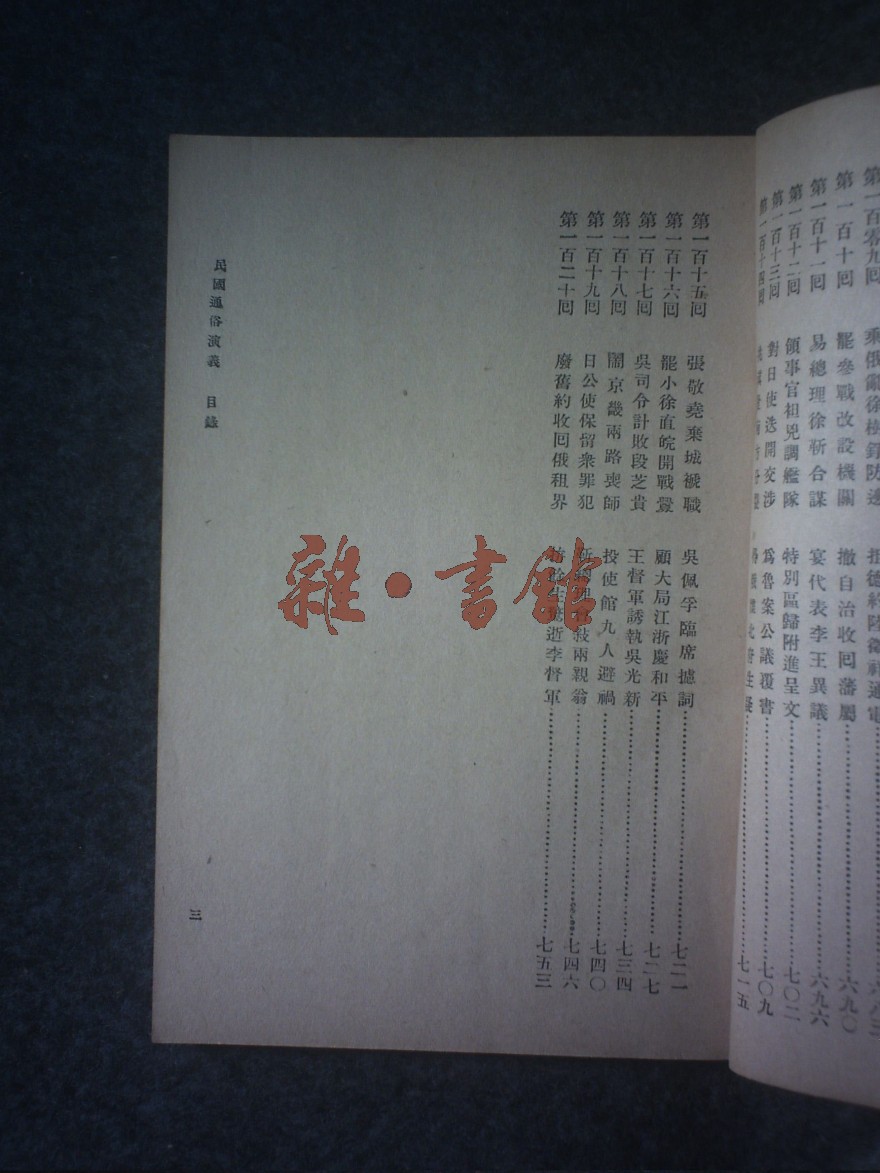 第一百零九回 乘俄亂徐樹錚防邊 拒德約陸徵祥通電 六八三
第一百十回 罷參戰改設機關 撤自治收回藩屬 六九〇
第一百十一回 易總理徐靳合謀 宴代表李王異議 六九六
第一百十二回 領事官袒兇調艦隊 特別區歸附進呈文 七〇二
第一百十三回 對日使迭開交涉 爲魯案公議覆書 七〇九
第一百十四回 七一五
第一百十五回 張敬堯棄城褫職 吳佩孚臨席摅詞 七二一
第一百十六回 罷小徐直皖開戰釁 顧大局江浙慶和平 七二七
第一百十七回 吳司令計敗段芝貴 王督軍誘執吳光新 七三四
第一百十八回 鬧京畿兩路喪師 投使館九人避禍 七四〇
第一百十九回 日公使保留衆罪犯 兩親翁 七四六
第一百二十回 廢舊約收回俄租界 逝李督軍 七五三
民國通俗演義 目錄
三
雜·書館